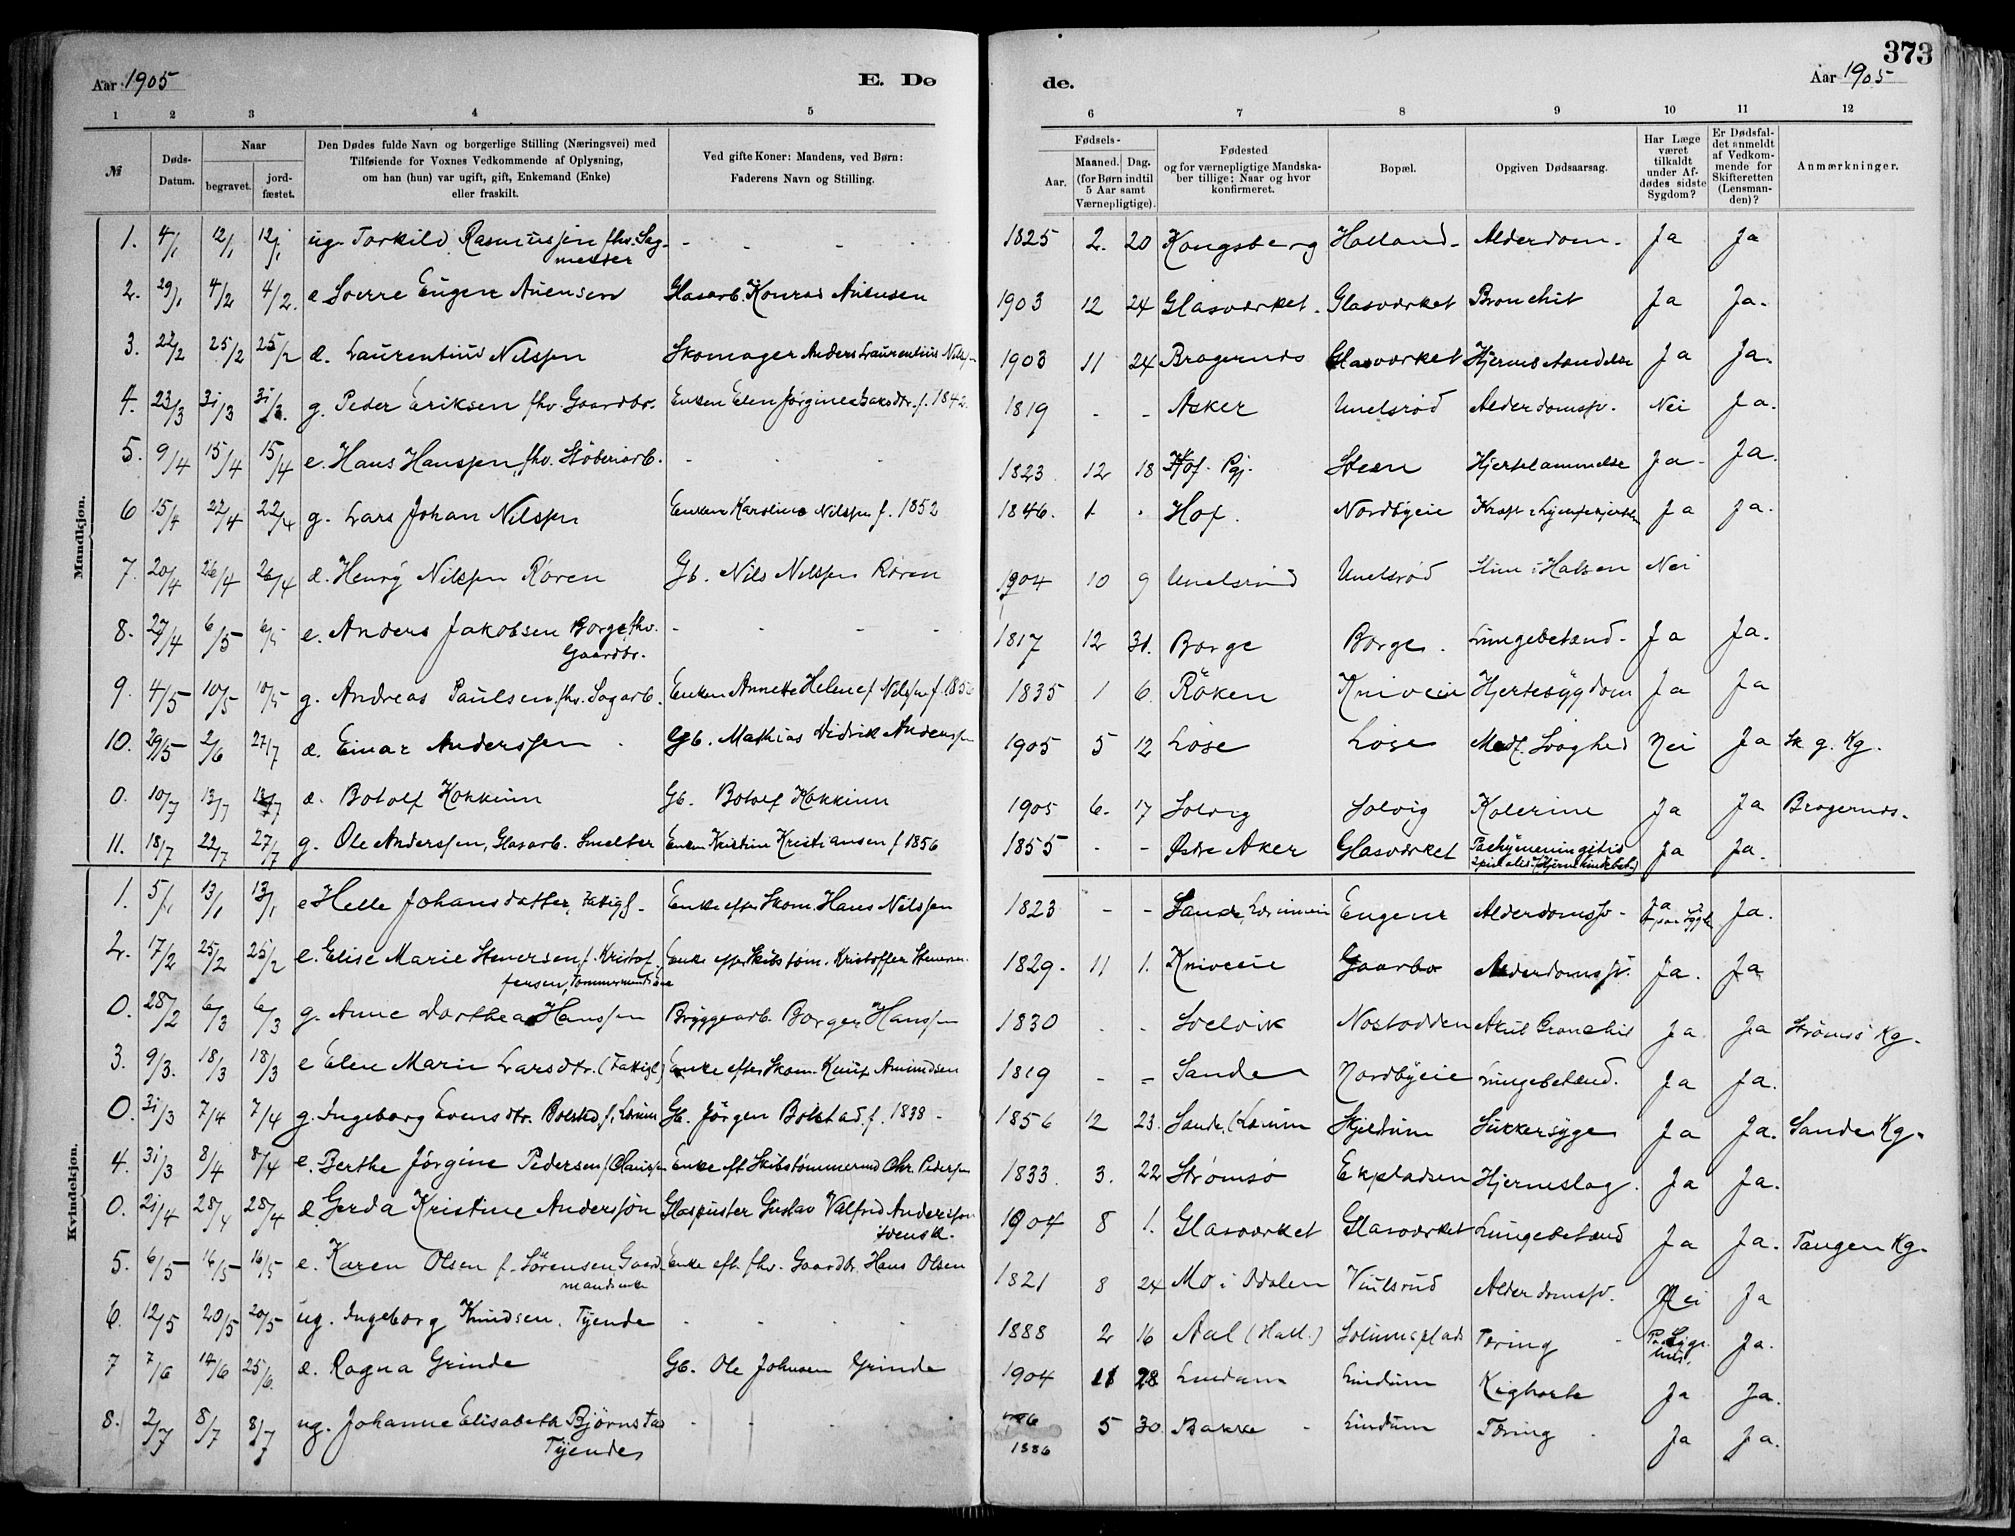 373
Aar 1905
E. Dø
de.
Aar 1905
1 2 3 4 5 6 7 8 9 10 11 12
№
Døds-
Datum.
Naar
begravet.
jord-
fæstet.
Den Dødes fulde Navn og borgerlige Stilling (Næringsvei) med
Tilføiende for Voxnes Vedkommende af Oplysning,
om han (hun) var ugift, gift, Enkemand (Enke)
eller fraskilt.
Ved gifte Koner: Mandens, ved Børn:
Faderens Navn og Stilling.
Fødsels-
Aar.
Maaned.
Dag.
(for Børn indtil
5 Aar samt
Værnepligtige).
Fødested
og for værnepligtige Mandska-
ber tillige: Naar og hvor
konfirmeret.
Bopæl.
Opgiven Dødsaarsag.
Har Læge
været
tilkaldt
under Af-
dødes sidste
Sygdom?
Er Dødsfal-
det anmeldt
af Vedkom-
mende for
Skifteretten
(Lensman-
den)?
Anmærkninger.
Mandkjøn.
1. 4/1 12/1 12/1 ug. Torkild Rasmussen fhv. Sag- - - - - 1825 2. 20 Kongsberg Holland - Alderdom. Ja Ja
mester
2. 29/1 4/2 4/2. d. Sverre Eugen Auensen Glasarb. Konrad Auensen 1903 12 24 Glasværket. Glasværket Bronchit Ja Ja.
3. 22/2 25/2 25/2 d. Laurentius Nilssen Skomager Anders Laurentius 1903 11 24 Bragernes Glasværket Ja Ja.
4. 23/3 31/3 31/3. g. Peder Eriksen fhv. Gaardbr. Enken Elen Jørgine f. 1842. 1819 - - Asker Unelsrød Alderdomssv. Nei Ja.
5. 9/4 15/4 15/4 e. Hans Hanssen, fhv. Støberiarb. - - - 1823 12 18 Hof. Pgj. Steen Hjertelammelse Ja Ja.
6 15/4 22/4 22/4 g. Lars Johan Nilssen Enken Karoline Nilssen f. 1852 1846. 1. . Hof. Nordbyeie Kræft Ja Ja.
7. 20/4 26/4 26/4 d. Henry Nilssen Røren Gb. Nils Nilssen Røren 1904 10 9 Unelsrud Unelsrød i Halsen Nei
8. 27/4 6/5 6/5 e. Anders Jakobsen Borge, fhv. - - - - 1817 12 31. Borge Borge. Lungebetænd. Ja Ja.
Gaardbr.
9. 4/5 10/5 10/5 g. Andreas Paulsen, fhv. Sagarb. Enken Annette Helene f. Nilssen f. 1835 1 6. Röken Kniveie Hjertesygdom Ja Ja
10. 29/5 2/6 27/7 d. Einar Anderssen. Gb. Mathias Didrik Anderssen 1905 5 12 Løse Løse Medf. Svaghed Nei Ja Sk. g. Kg.
0. 10/7 13/7 13/7 d. Botolf Hokkinn Gb. Botolf Hokkinn 1905 6. 17 Solvig Solvig Kolerine Ja Ja Bragernes.
11. 18/7 22/7 27/7 g. Ole Anderssen, Glasarb. Smelter Enken Kristine Kristiansen f 1856 1855 - - Østre Aker Glasværket Pachymeningitis Ja Ja.
spinalis
Kvindekjøn.
1. 5/1 13/1 13/1 e Helle Johansdatter, Fattigl. Enke efter Skom. Hans Nilssen 1823 - - Sande Engene Alderdomssv. Ja Ja.
2. 17/2 25/2 25/2 e. Elise Marie Stenersen f. Kristof- Enke efter Skibstøm. Kristoffer Stenersen 1829. 11 1. Kniveie Gaarbo Alderdomssv. Ja. Ja
fersen,
0. 28/2 6/3 6/3 g. Anne Dorthea Hanssen Bryggearb. Borger Hanssen 1830 - - Svelvik Nostodden Akut Bronchit Ja Ja Strømsø Kg.
3. 9/3. 18/3 18/3 e Elen Marie Larsdtr. (Fattigl.) Enke efter Skom. Knut Amundsen 1819 - - Sande Nordbyeie Lungebetænd. Ja Ja.
0. 31/3 7/4 7/4 g. Ingeborg Evensdtr. Bolstad f. Lærum Gb. Jörgen Bolstad f. 1838 - 1856 12 23. Sande, (Lærum Skjeldrum Sukkersyge Ja Ja. Sande Kg.
4. 31/3 8/4 8/4 e. Berthe Jørgine Pedersen f. Olaussen Enke eft Skibstømmermd Chr. Pedersen 1833. 3. 22 Strømsø Ekpladsen Hjerneslag. Ja Ja.
0. 21/4 28/4 28/4 d. Gerda Kristine Anderssön Glaspuster Gustav Valfrid Anderssön 1904 8 1. Glasværket Glasværket Lungebetænd Ja Ja. Tangen Kg.
svensk.
5. 6/5 16/5 16/5 e. Karen Olsen f. Sörensen Gaard- Enke eft. fhv. Gaardbr. Hans Olsen 1821 8 24 Mo i Odalen Viulsrud Alderdomssv. Nei Ja
mandsenke
6. 12/5 20/5 20/5 ug. Ingeborg Knudsen. Tjende - - - - 1888 2 16 Aal (Hall.) Solumsplads Tæring Paa Syge- Ja.
hus.
7 7/6 14/6 25/6. d. Ragna Grinde Gb. Ole Johnsen Grinde 1904 11 28 Lindum Lindum Kighoste Ja Ja.
8. 2/7 8/7 8/7 ug. Johanne Elisabeth Bjørnstad - - - - 1886 5 30. Bakke - Lindum Tæring. Ja Ja.
Tjende